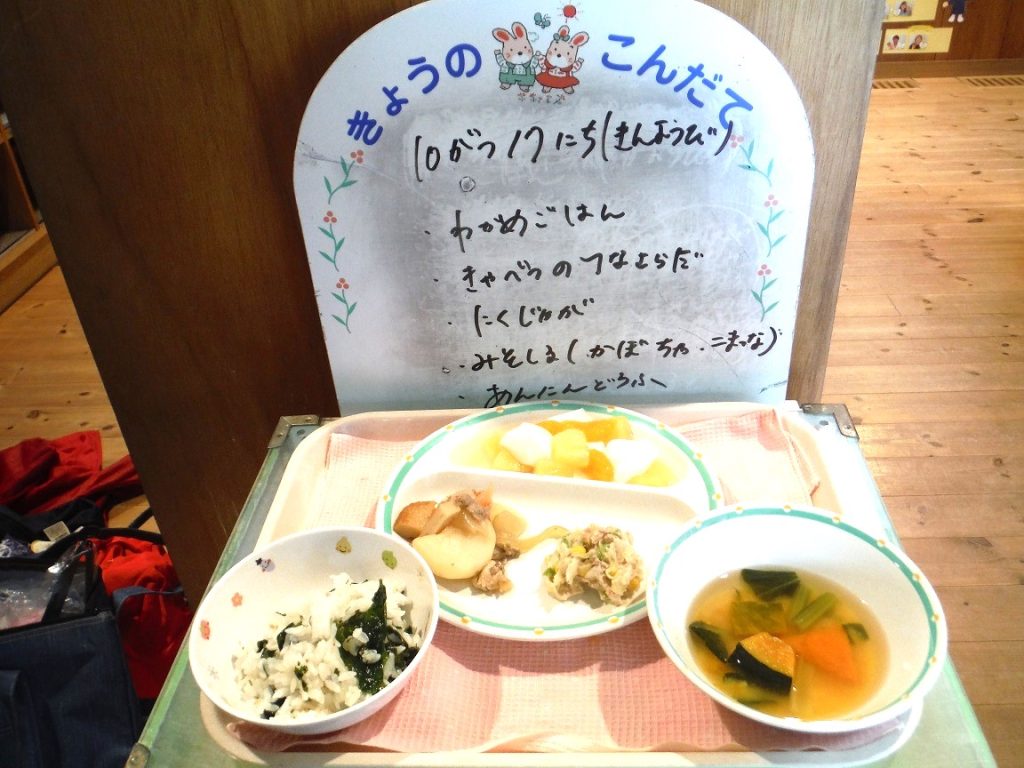 きょうの こんだて
10がつ17にち(きんようび)
・わかめごはん
・きゃべつのつなさらだ
・にくじゃが
・みそしる(かぼちゃ・こまつな)
・あんにんどうふ